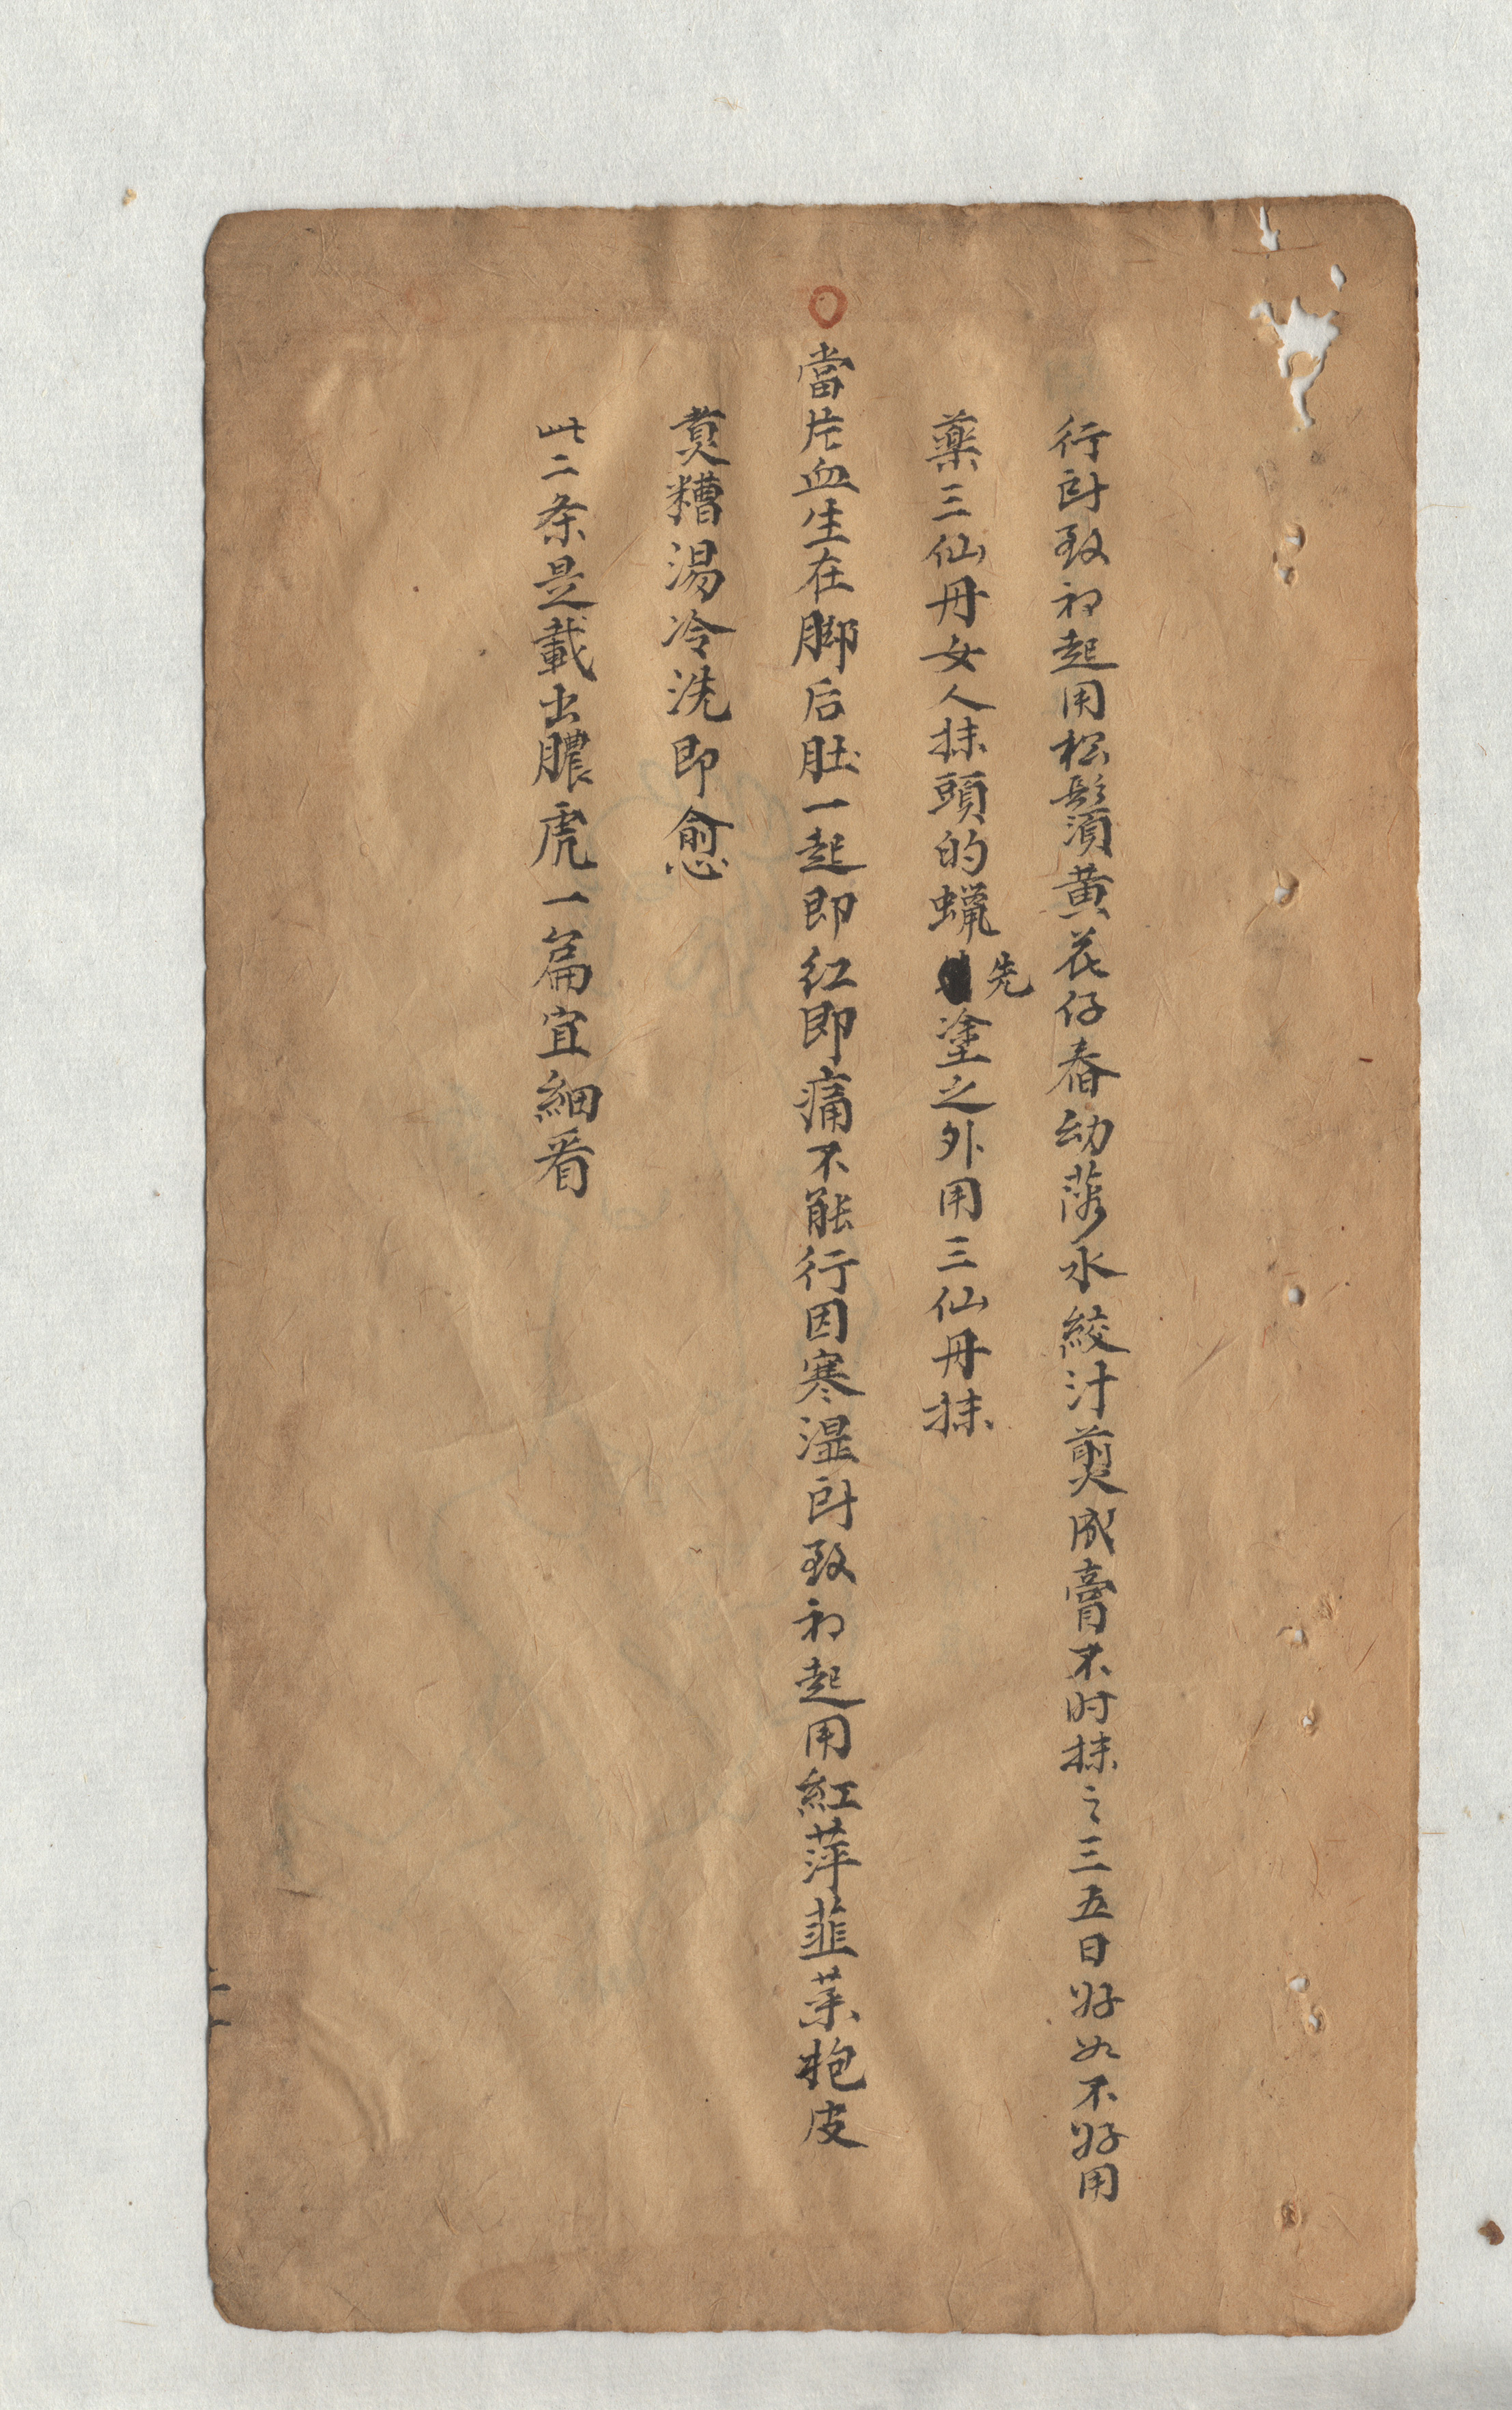 行所致初起用松鬚黄花仔舂幼落水絞汁煎成膏不时抹之三五日好如不好用
藥三仙丹女人抹頭的蠟先塗之外用三仙丹抹
○當片血生在脚后肚一起即红即痛不能行因寒湿所致初起用紅萍韮菜皮
煑糟湯冷洗即愈
此二条是載出膿虎一篇宜細看